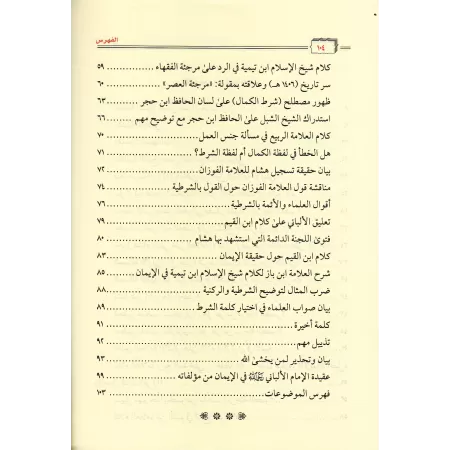 الفهرس
١٠٤
كلام شيخ الإسلام ابن تيمية في الرد على مرجئة الفقهاء ................ ٥٩
سر تاريخ (١٤٠٦ هـ) وعلاقته بمقولة: «مرجئة العصر» ................ ٦٠
ظهور مصطلح (شرط الكمال) على لسان الحافظ ابن حجر ................ ٦٣
استدراك الشيخ الشبل على الحافظ ابن حجر مع توضيح مهم ................ ٦٦
كلام العلامة الربيع في مسألة جنس العمل ................ ٧٠
هل الخطأ في لفظة الكمال أم لفظة الشرط؟ ................ ٧١
بيان حقيقة تسجيل هشام للعلامة الفوزان ................ ٧٢
مناقشة قول العلامة الفوزان حول القول بالشرطية ................ ٧٤
أقوال العلماء والأئمة بالشرطية ................ ٧٦
تعليق الألباني على كلام ابن القيم ................ ٧٩
فتوى اللجنة الدائمة التي استشهد بها هشام ................ ٨٠
كلام ابن القيم حول حقيقة الإيمان ................ ٨٣
شرح العلامة ابن باز لكلام شيخ الإسلام ابن تيمية في الإيمان ................ ٨٥
ضرب المثال لتوضيح الشرطية والركنية ................ ٨٨
بيان صواب العلماء في اختيار كلمة الشرط ................ ٨٩
كلمة أخيرة ................ ٩١
تذييل مهم ................ ٩٢
بيان وتحذير لمن يخشى الله ................ ٩٣
عقيدة الإمام الألباني في الإيمان من مؤلفاته ................ ٩٩
فهرس الموضوعات ................ ١٠٣